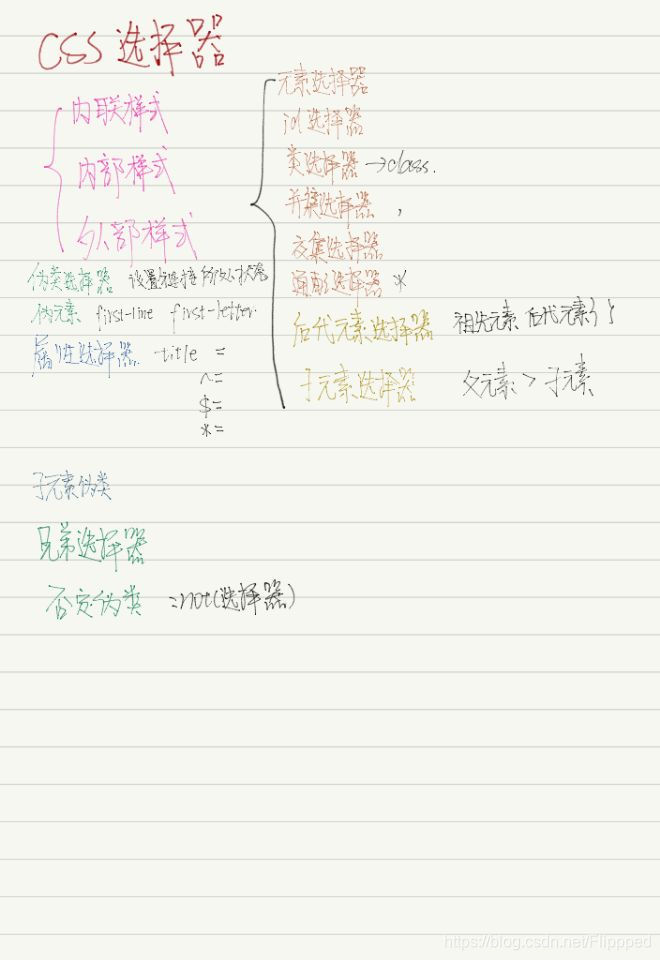 CSS 选择器
内联样式
内部样式
外部样式
元素选择器
id选择器
类选择器 →class.
并集选择器 ,
交集选择器
通配选择器 *
后代元素选择器 祖先元素 后代元素{ }
子元素选择器 父元素 > 子元素
伪类选择器 设置超链接
伪元素 first-line first-letter.
属性选择器 title =
^=
$=
*=
子元素伪类
兄弟选择器
否定伪类 :not(选择器)
https://blog.csdn.net/Flippped